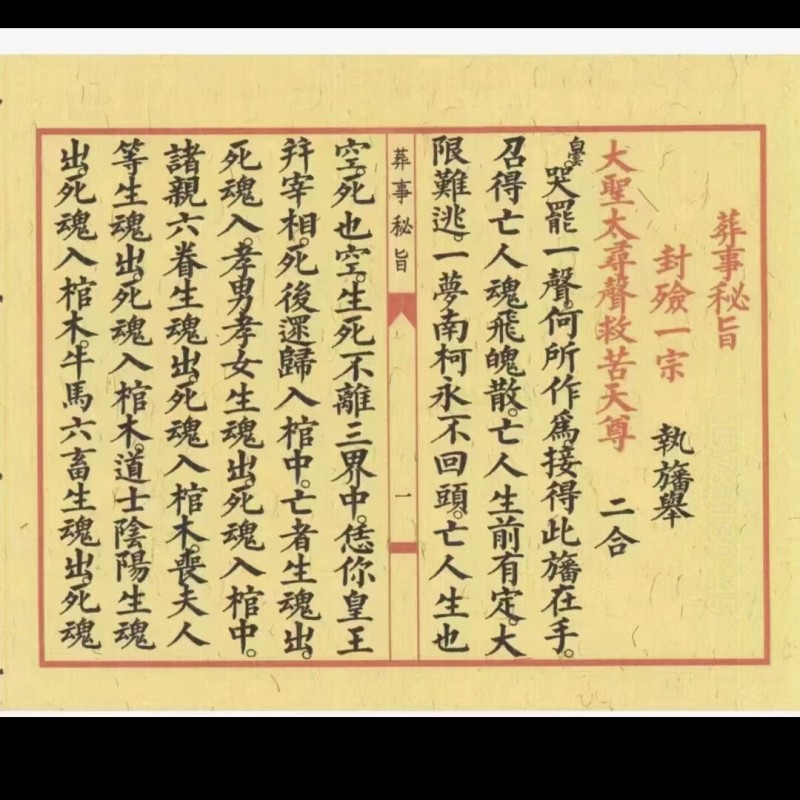 葬事秘旨
封殮一宗 執旛舉
大聖太尋聲救苦天尊 二合
皇壇哭罷一聲。何所作爲。接得此旛在手。
召得亡人魂飛魄散。亡人生前有定。大
限難逃。一夢南柯永不回頭。亡人生也
葬事秘旨 一
空。死也空。生死不離三界中。恁你皇王
并宰相。死後還歸入棺中。亡者生魂出。
死魂入。孝男孝女生魂出。死魂入棺中。
諸親六眷生魂出。死魂入棺木。喪夫人
等生魂出。死魂入棺木。道士陰陽生魂
出。死魂入棺木。牛馬六畜生魂出。死魂